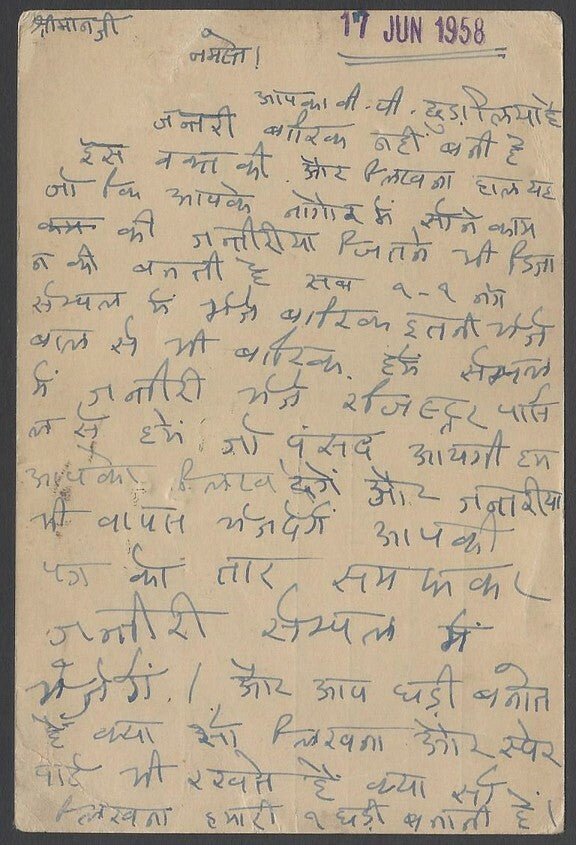 श्रीमानजी
17 JUN 1958
नमस्ते।
आपका वी.पी. छुड़ा लिया है
जन्तरी बारिक नहीं बनी है
इस वक्त की और लिखना हाल यह
जो कि आपके नागौर में सोने काम
की जन्तरीया जितने भी डिजा
न की बनती है सब १-१ नंग
सेम्पल में भेजे बारिक इतनी भेजे
बाल से भी बारिक. हमें सेम्पल
में जन्तरी भेजे रजिस्ट्रर पार्स
ल से हमें जो पंसद आयगी हम
आपको लिख देगें और जन्तरीया
भी वापस भेजदेगें आपकी
पत्र को तार समझकर
जन्तरी सेम्पल में
भेजोगें। और आप घड़ी बनात
है क्या सो लिखना और स्पेर
पार्ट भी रखते हैं क्या सो
लिखना हमारी १ घड़ी बनानी है।